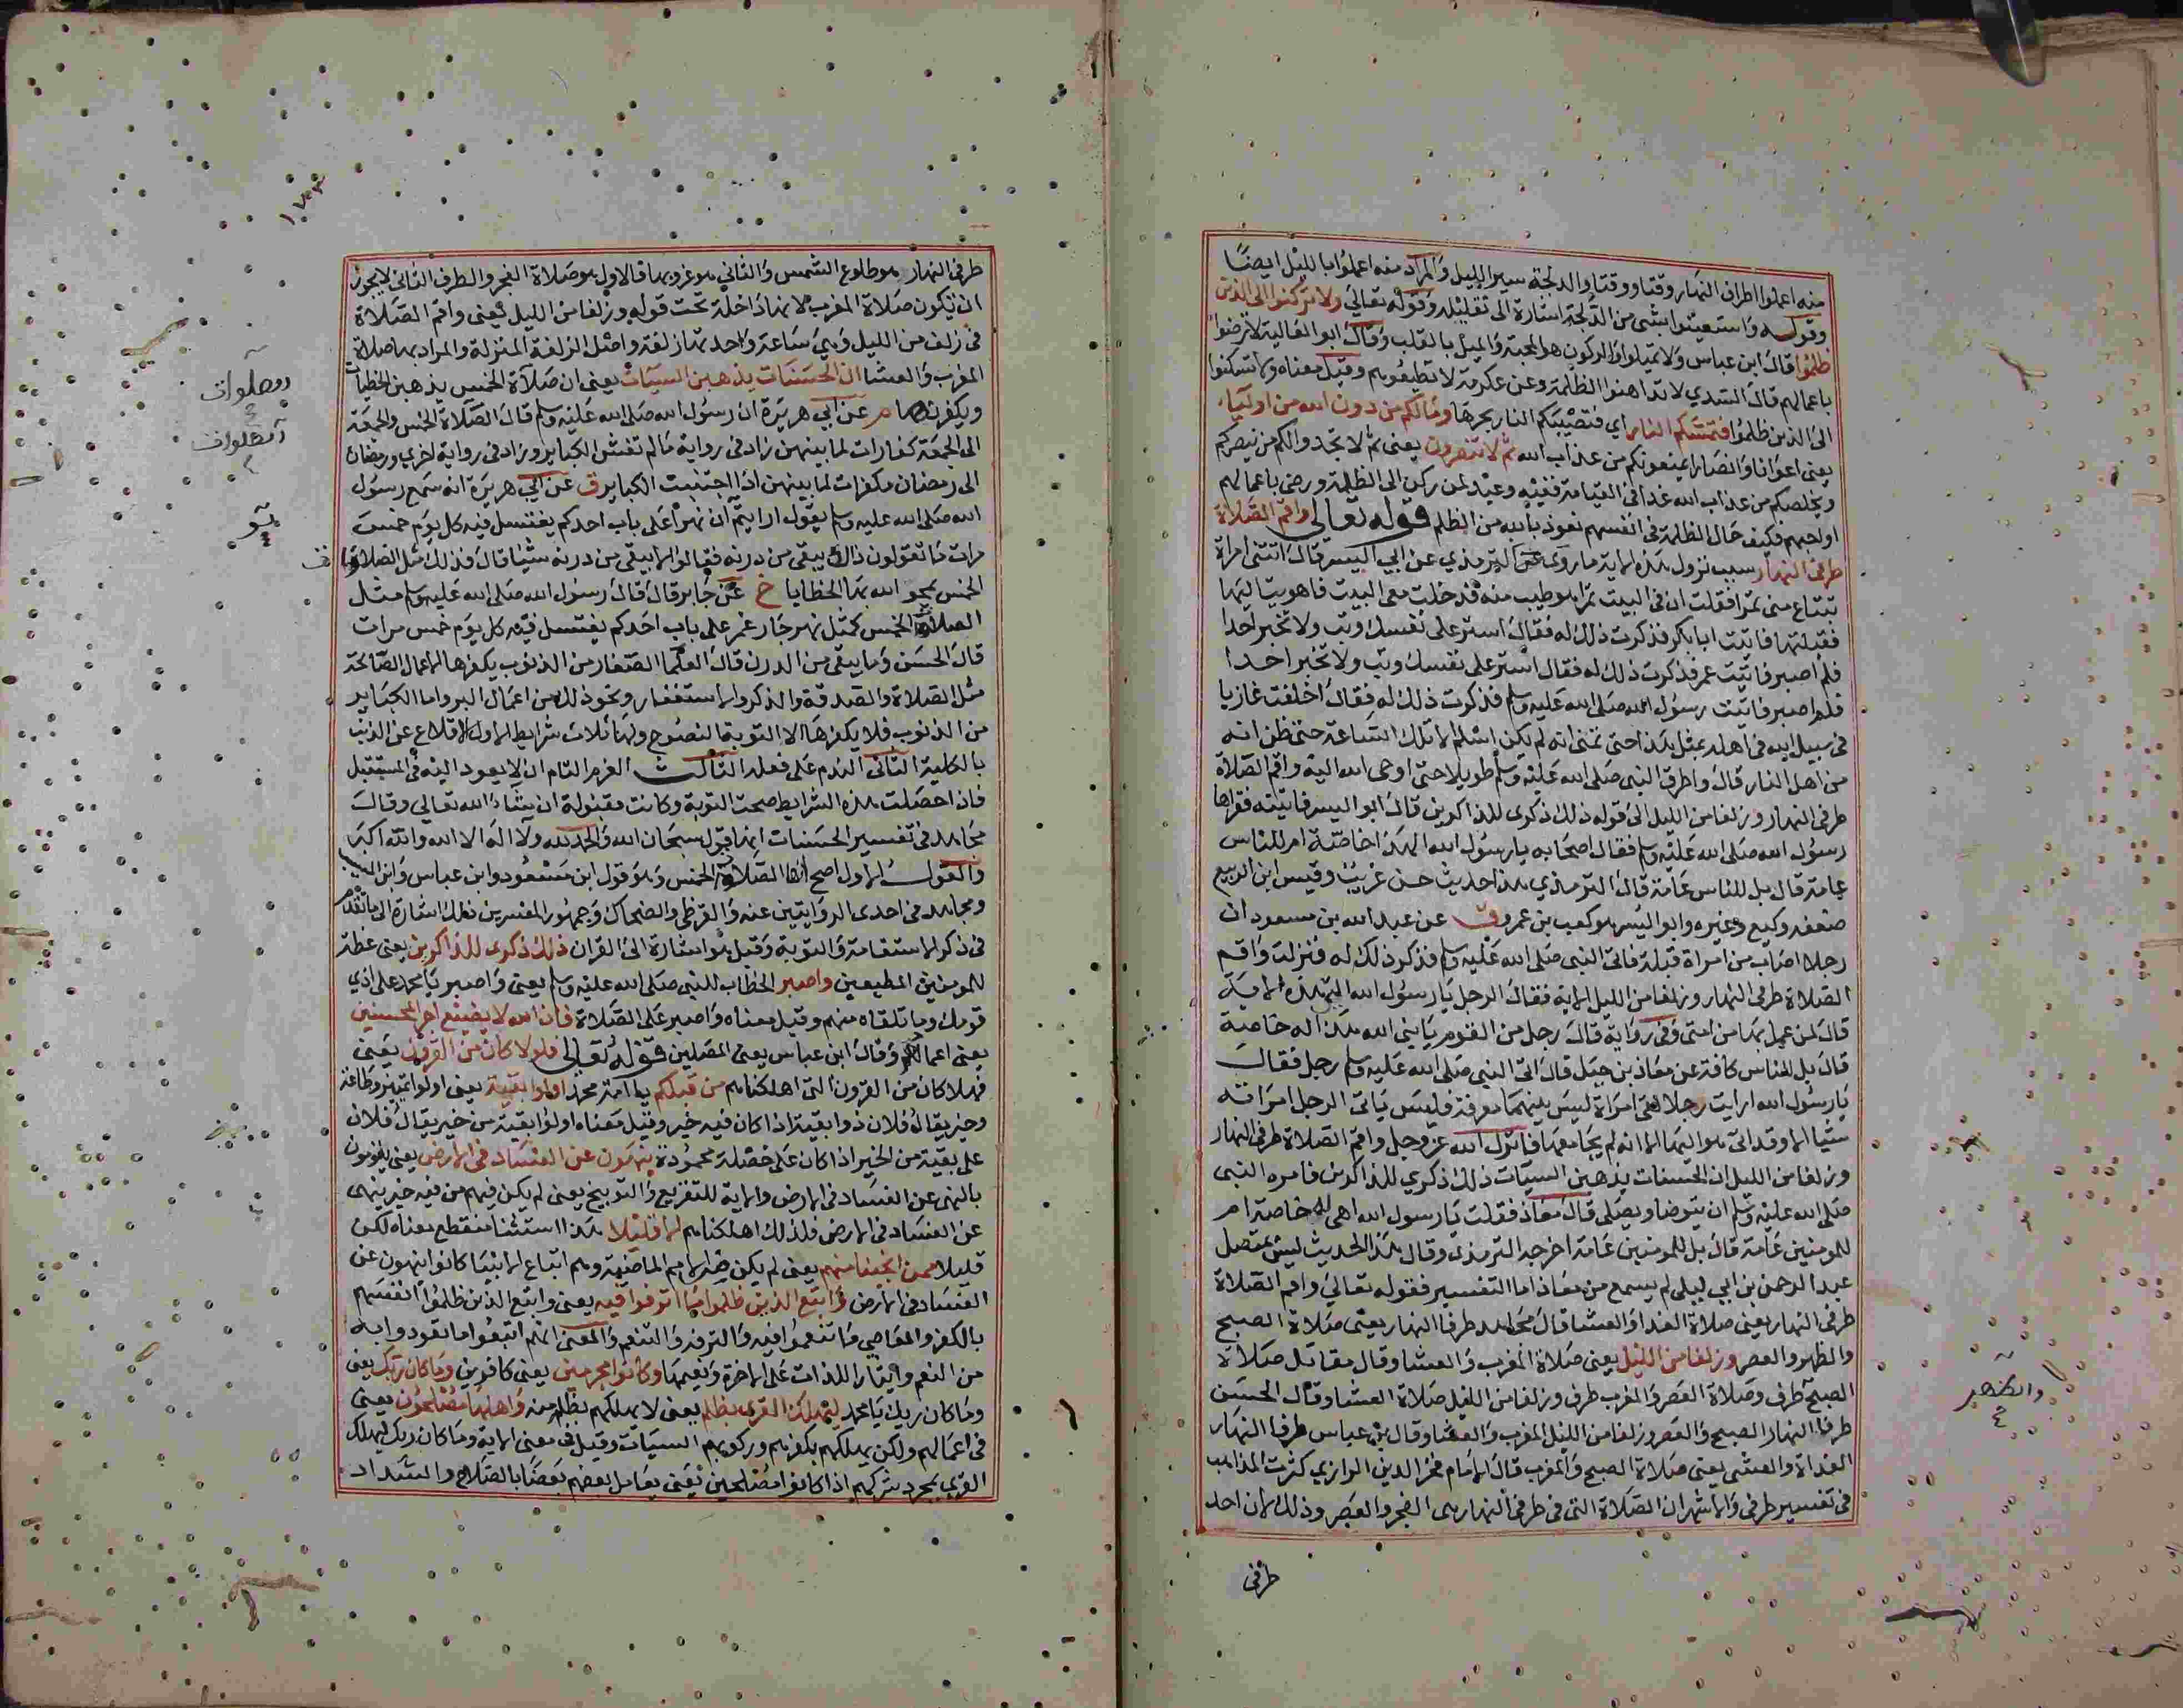 منه اعملوا اطراف النهار وقتا ووقتا والدلجة سير الليل والمراد منه اعملوا بالليل ايضا
وقوله واستعينوا بشى من الدلجة اشارة الى تقليله وقوله تعالى ولا تركنوا الى الذين
ظلموا قال ابن عباس ولا تميلوا والركون هو المحبة والميل بالقلب وقال ابو العالية لا ترضوا
باعمالهم قال السدي لا تداهنوا الظلمة وعن عكرمة لا تطيعوهم وقيل معناه ولا تسكنوا
الى الذين ظلموا فتمسكم النار اي فتصيبكم النار بحرها ومالكم من دون الله من اولياء
يعنى اعوانا وانصارا يمنعونكم من عذاب الله ثم لا تنصرون يعنى ثم لا تجدوا لكم من ينصركم
ويخلصكم من عذاب الله غدا فى القيامة ففيه وعيد لمن ركن الى الظلمة ورضى باعمالهم
او احبهم فكيف حال الظلمة فى انفسهم نعوذ بالله من الظلم قوله تعالى واقم الصلاة
طرفى النهار سبب نزول هذه الاية ما روى عن الترمذي عن ابي اليسر قال اتتنى امراة
تبتاع منى تمرا فقلت ان فى البيت تمرا هو طيب منه فدخلت معى البيت فاهويت اليها
فقبلتها فاتيت ابا بكر فذكرت ذلك له فقال استر على نفسك وتب ولا تخبر احدا
فلم اصبر فاتيت عمر فذكرت ذلك له فقال استر على نفسك وتب ولا تخبر احدا
فلم اصبر فاتيت رسول الله صلى الله عليه وسلم فذكرت ذلك له فقال اخلفت غازيا
فى سبيل الله فى اهله بمثل هذا حتى تمنى انه لم يكن اسلم الا تلك الساعة حتى ظن انه
من اهل النار قال واطرق النبى صلى الله عليه وسلم طويلا حتى اوحى الله اليه واقم الصلاة
طرفى النهار وزلفا من الليل الى قوله ذلك ذكرى للذاكرين قال ابو اليسر فاتيته فقراها
رسول الله صلى الله عليه وسلم فقال اصحابه يا رسول الله الهذا خاصة ام للناس
عامة قال بل للناس عامة قال الترمذي هذا حديث حسن غريب وقيس ابن الربيع
ضعفه وكيع وغيره وابو اليسر هو كعب بن عمرو ق عن عبد الله بن مسعود ان
رجلا اصاب من امراة قبلة فاتى النبى صلى الله عليه وسلم فذكر ذلك له فنزلت واقم
الصلاة طرفى النهار وزلفا من الليل الاية فقال الرجل يا رسول الله الى هذه الاية
قال لمن عمل بها من امتى وفى رواية قال رجل من القوم يا نبي الله هذا له خاصة
قال بل للناس كافة عن معاذ بن جبل قال اتى النبي صلى الله عليه وسلم رجل فقال
يا رسول الله ارايت رجلا لقى امراة ليس بينهما معرفة فليس ياتى الرجل امراته
شيا الا وقد اتى هو اليها الا انه لم يجامعها فانزل الله عز وجل واقم الصلاة طرفى النهار
وزلفا من الليل ان الحسنات يذهبن السيات ذلك ذكري للذاكرين فامره النبى
صلى الله عليه وسلم ان يتوضا ويصلى قال معاذ فقلت يا رسول الله اهى له خاصة ام
للمومنين عامة قال بل للمومنين عامة اخرجه الترمذى وقال هذا الحديث ليس بمتصل
عبد الرحمن بن ابي ليلى لم يسمع من معاذ اما التفسير فقوله تعالى واقم الصلاة
طرفى النهار يعنى صلاة الغدا والعشا قال مجاهد طرفا النهار يعنى صلاة الصبح
والظهر والعصر وزلفا من الليل يعنى صلاة المغرب والعشا وقال مقاتل صلاة
الصبح طرف وصلاة العصر والمغرب طرف وزلفا من الليل صلاة العشا وقال الحسن
طرفا النهار الصبح والعصر وزلفا من الليل المغرب والعشا وقال ابن عباس طرفا النهار
الغداة والعشى يعنى صلاة الصبح والمغرب قال الامام فخر الدين الرازي كثرت المذاهب
فى تفسير طرفى والاشهر ان الصلاة التى فى طرفى النهار هى الفجر والعصر وذلك لان احد
طرفى
والظهر
طرفى النهار هو طلوع الشمس والثانى هو غروبها فالاول هو صلاة الفجر والطرف الثانى لا يجوز
ان يكون صلاة المغرب لانها داخلة تحت قوله وزلفا من الليل يعنى واقم الصلاة
فى زلف من الليل وهى ساعة واحدتها زلفة واصل الزلفة المنزلة والمراد بها صلاة
المغرب والعشا ان الحسنات يذهبن السيات يعنى ان صلاة الخمس يذهبن الخطيات
ويكفرنها م عن ابي هريرة ان رسول الله صلى الله عليه وسلم قال الصلاة الخمس والجمعة
الى الجمعة كفارات لما بينهن زاد فى رواية ما لم تغش الكباير وزاد فى رواية اخري ورمضان
الى رمضان مكفرات لما بينهن اذا اجتنبت الكباير ق عن ابي هريرة انه سمع رسول
الله صلى الله عليه وسلم يقول ارايتم ان نهرا على باب احدكم يغتسل فيه كل يوم خمس
مرات ما تقولون ذلك يبقى من درنه فقالوا لا يبقى من درنه شيا قال فذلك مثل الصلاة
الخمس يمحو الله بها الخطايا خ عن جابر قال قال رسول الله صلى الله عليه وسلم مثل
الصلاة الخمس كمثل نهر جار غمر على باب احدكم يغتسل فيه كل يوم خمس مرات
قال الحسن وما يبقى من الدرن قال العلما الصغار من الذنوب يكفرها الاعمال الصالحة
مثل الصلاة والصدقة والذكر والاستغفار ونحو ذلك من اعمال البر واما الكباير
من الذنوب فلا يكفرها الا التوبة النصوح ولها ثلاث شرايط الاول الاقلاع عن الذنب
بالكلية الثانى الندم على فعله الثالث العزم التام ان لا يعود اليه فى المستقبل
فاذا حصلت هذه الشرايط صحت التوبة وكانت مقبولة ان شاء الله تعالى وقال
مجاهد فى تفسير الحسنات انها قول سبحان الله والحمد لله ولا اله الا الله والله اكبر
والقول الاول اصح انها الصلاة الخمس وهو قول ابن مسعود وابن عباس وابن المسيب
ومجاهد فى احدى الروايتين عنه والقرظى والضحاك وجمهور المفسرين ذلك اشارة الى ما تقدم
فى ذكر الاستقامة والتوبة وقيل هو اشارة الى القران ذلك ذكرى للذاكرين يعنى عظة
للمومنين المطيعين واصبر الخطاب للنبى صلى الله عليه وسلم يعنى واصبر يا محمد على اذي
قومك وما تلقاه منهم وقيل معناه واصبر على الصلاة فان الله لا يضيع اجر المحسنين
يعنى اعمالهم وقال ابن عباس يعنى المصلين قوله تعالى فلولا كان من القرون يعنى
فهلا كان من القرون التى اهلكناهم من قبلكم يا امة محمد اولوا بقية يعنى اولوا تمييز وطاعة
وخير يقال فلان ذو بقية اذا كان فيه خير وقيل معناه اولوا بقية من خير يقال فلان
على بقية من الخير اذا كان على خصلة محمودة ينهون عن الفساد فى الارض يعنى يقومون
بالنهى عن الفساد فى الارض والاية للتقريع والتوبيخ يعنى لم يكن فيهم من فيه خير ينهى
عن الفساد فى الارض فلذلك اهلكناهم الا قليلا هذا استثنا منقطع معناه لكن
قليلا ممن انجينا منهم يعنى لم يكن من الامم الماضية وهم اتباع الانبيا كانوا ينهون عن
الفساد فى الارض واتبع الذين ظلموا ما اترفوا فيه يعنى واتبع الذين ظلموا انفسهم
بالكفر والمعاصي ما تنعموا فيه والترف والتنعم والمعنى انهم اتبعوا ما تعودوا به
من النعم وايثار اللذات على الاخرة ونعيمها وكانوا مجرمين يعنى كافرين وما كان ربك يعنى
وما كان ربك يا محمد ليهلك القرى بظلم يعنى لا يهلكهم بظلم منه واهلها مصلحون يعنى
فى اعمالهم ولكن يهلكهم بكفرهم وركوبهم السيات وقيل فى معنى الاية وما كان ربك ليهلك
القري بمجرد شركهم اذا كانوا مصلحين يعنى يعامل بعضهم بعضا بالصلاح والسداد